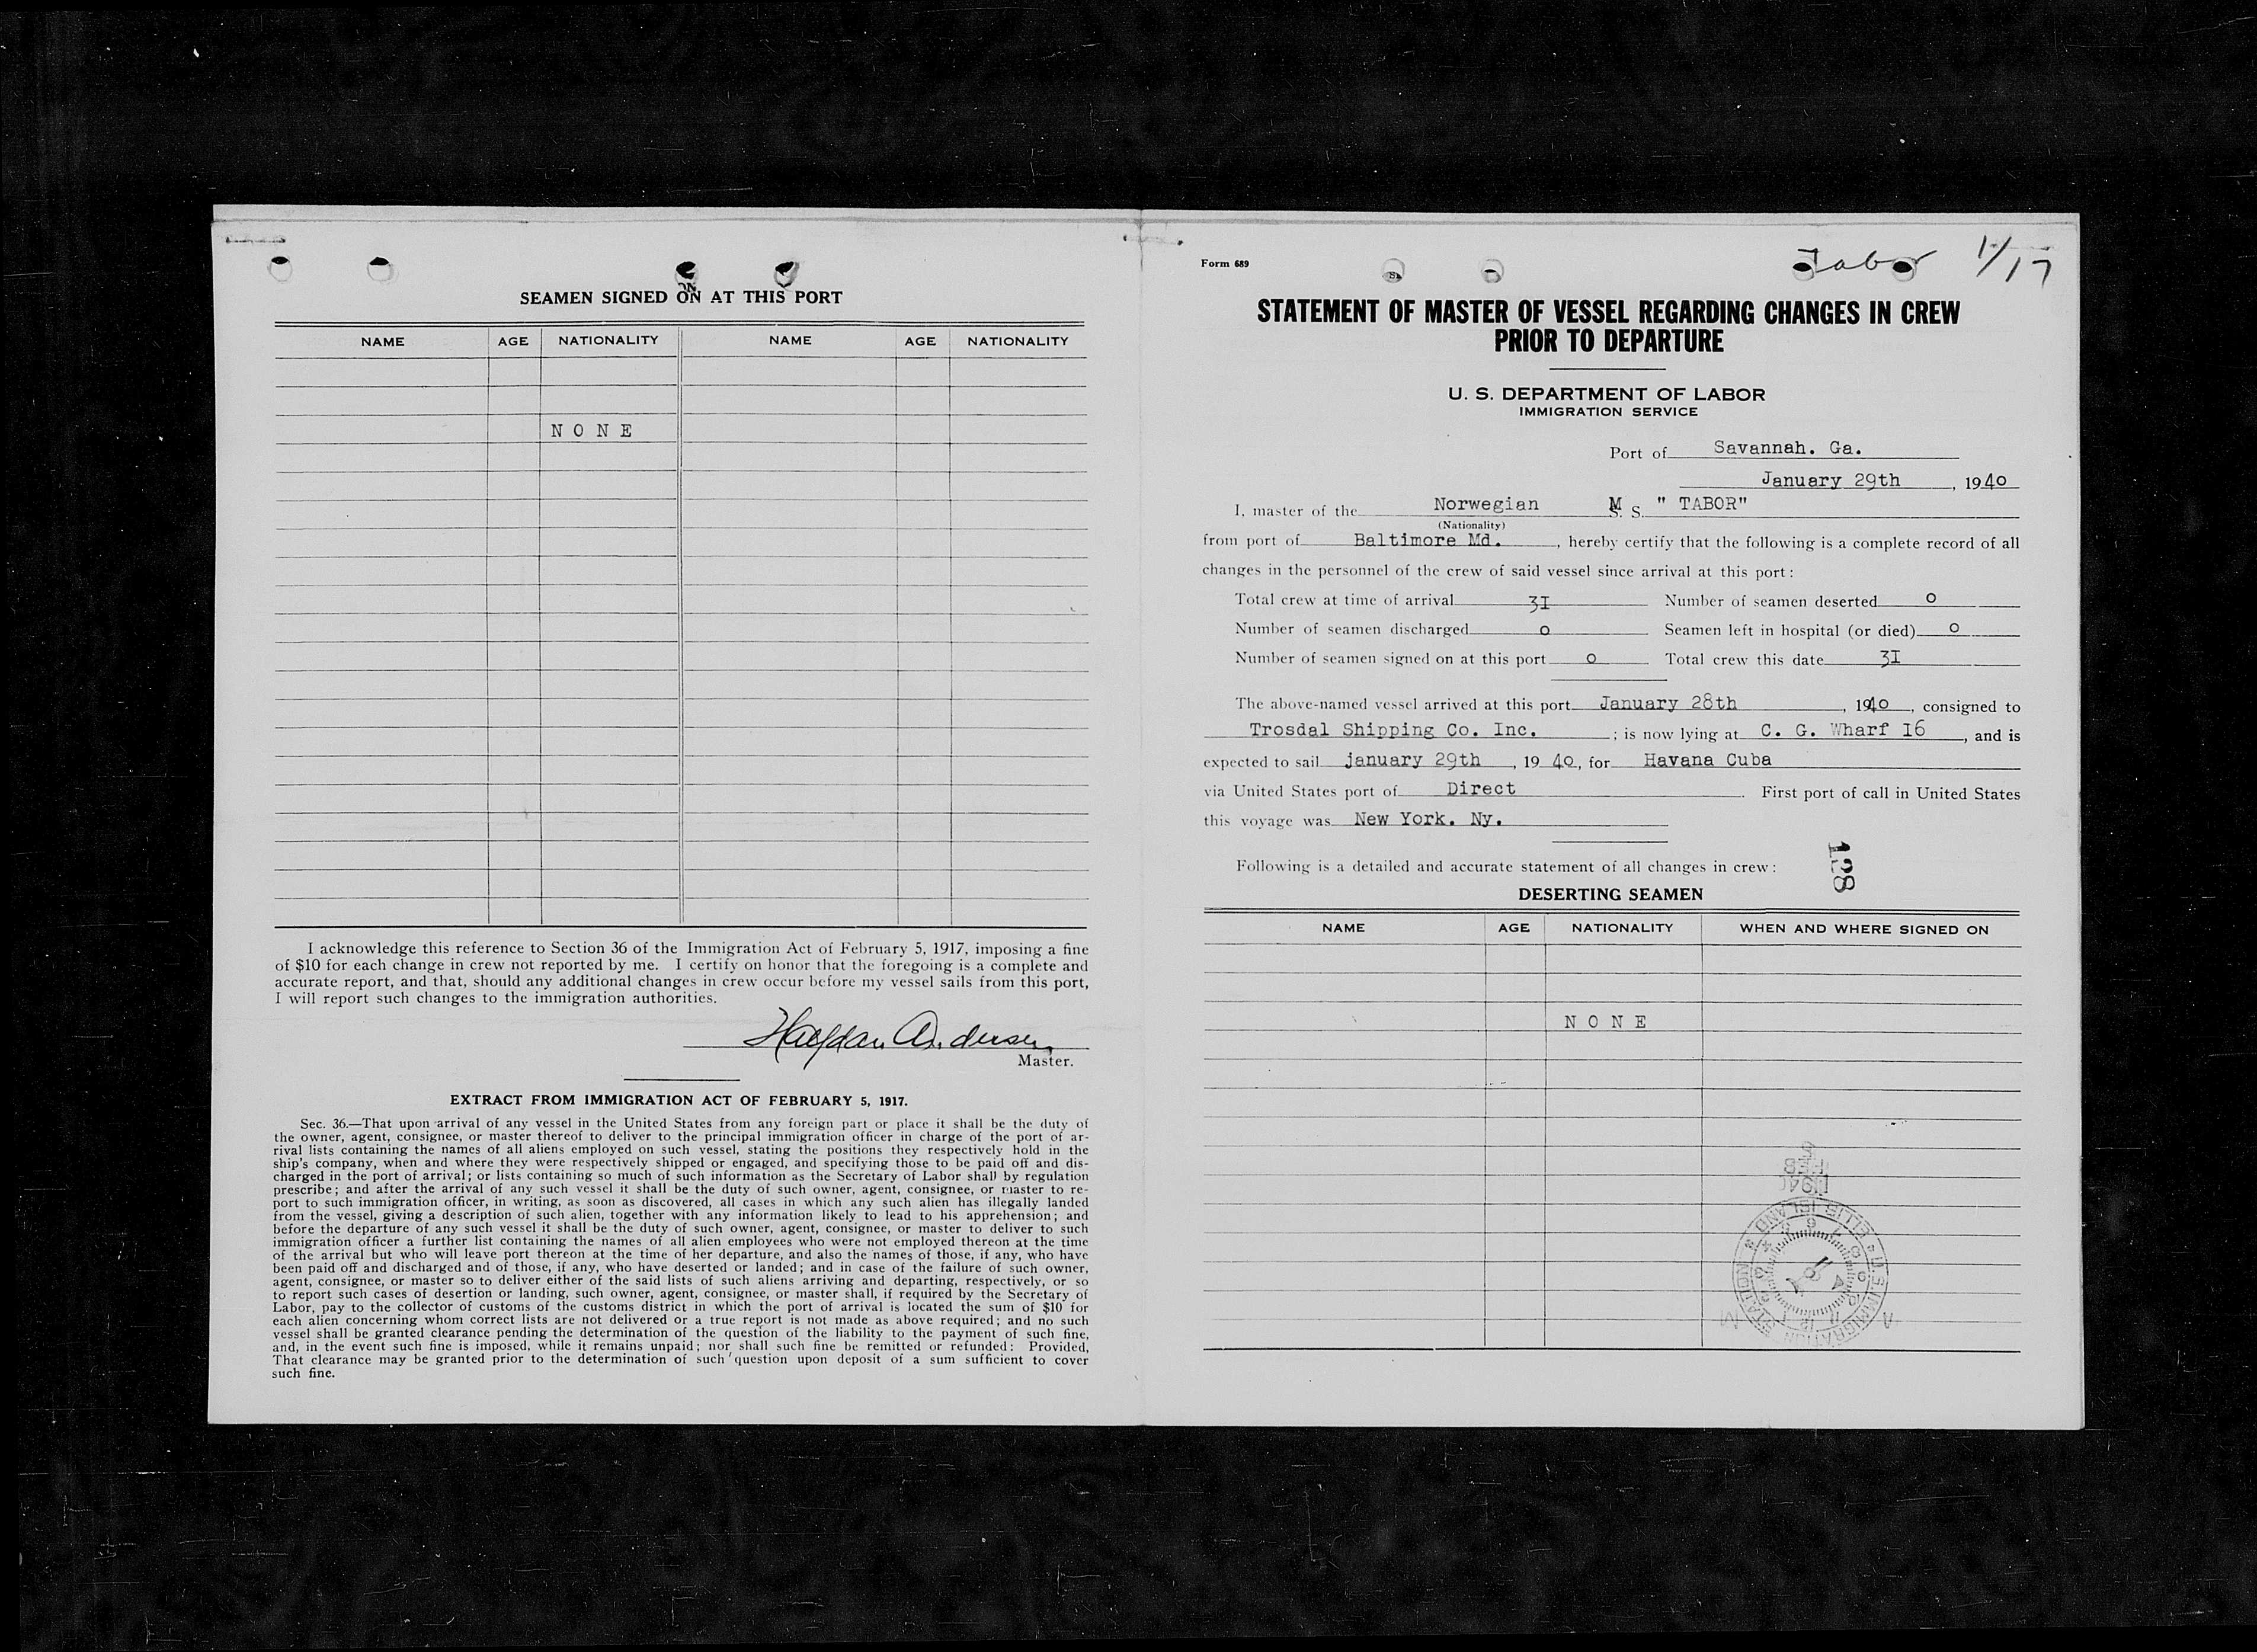 SEAMEN SIGNED ON AT THIS PORT
NAME AGE NATIONALITY NAME AGE NATIONALITY
N O N E
I acknowledge this reference to Section 36 of the Immigration Act of February 5, 1917, imposing a fine
of $10 for each change in crew not reported by me. I certify on honor that the foregoing is a complete and
accurate report, and that, should any additional changes in crew occur before my vessel sails from this port,
I will report such changes to the immigration authorities.
Halfdan Andersen
Master.
EXTRACT FROM IMMIGRATION ACT OF FEBRUARY 5, 1917.
Sec. 36.—That upon arrival of any vessel in the United States from any foreign part or place it shall be the duty of
the owner, agent, consignee, or master thereof to deliver to the principal immigration officer in charge of the port of ar-
rival lists containing the names of all aliens employed on such vessel, stating the positions they respectively hold in the
ship's company, when and where they were respectively shipped or engaged, and specifying those to be paid off and dis-
charged in the port of arrival; or lists containing so much of such information as the Secretary of Labor shall by regulation
prescribe; and after the arrival of any such vessel it shall be the duty of such owner, agent, consignee, or master to re-
port to such immigration officer, in writing, as soon as discovered, all cases in which any such alien has illegally landed
from the vessel, giving a description of such alien, together with any information likely to lead to his apprehension; and
before the departure of any such vessel it shall be the duty of such owner, agent, consignee, or master to deliver to such
immigration officer a further list containing the names of all alien employees who were not employed thereon at the time
of the arrival but who will leave port thereon at the time of her departure, and also the names of those, if any, who have
been paid off and discharged and of those, if any, who have deserted or landed; and in case of the failure of such owner,
agent, consignee, or master so to deliver either of the said lists of such aliens arriving and departing, respectively, or so
to report such cases of desertion or landing, such owner, agent, consignee, or master shall, if required by the Secretary of
Labor, pay to the collector of customs of the customs district in which the port of arrival is located the sum of $10 for
each alien concerning whom correct lists are not delivered or a true report is not made as above required; and no such
vessel shall be granted clearance pending the determination of the question of the liability to the payment of such fine,
and, in the event such fine is imposed, while it remains unpaid; nor shall such fine be remitted or refunded: Provided,
That clearance may be granted prior to the determination of such question upon deposit of a sum sufficient to cover
such fine.
Form 689
Tabor 1/17
STATEMENT OF MASTER OF VESSEL REGARDING CHANGES IN CREW
PRIOR TO DEPARTURE
U. S. DEPARTMENT OF LABOR
IMMIGRATION SERVICE
Port of Savannah. Ga.
January 29th, 1940
I, master of the Norwegian M S. " TABOR"
(Nationality)
from port of Baltimore Md., hereby certify that the following is a complete record of all
changes in the personnel of the crew of said vessel since arrival at this port:
Total crew at time of arrival 3I Number of seamen deserted o
Number of seamen discharged o Seamen left in hospital (or died) o
Number of seamen signed on at this port o Total crew this date 3I
The above-named vessel arrived at this port January 28th, 1940, consigned to
Trosdal Shipping Co. Inc.; is now lying at C. G. Wharf I6, and is
expected to sail january 29th, 19 40, for Havana Cuba
via United States port of Direct. First port of call in United States
this voyage was New York. Ny.
128
Following is a detailed and accurate statement of all changes in crew:
DESERTING SEAMEN
NAME AGE NATIONALITY WHEN AND WHERE SIGNED ON
N O N E
1940
FEB
U.S. IMMIGRATION STATION
ELLIS ISLAND